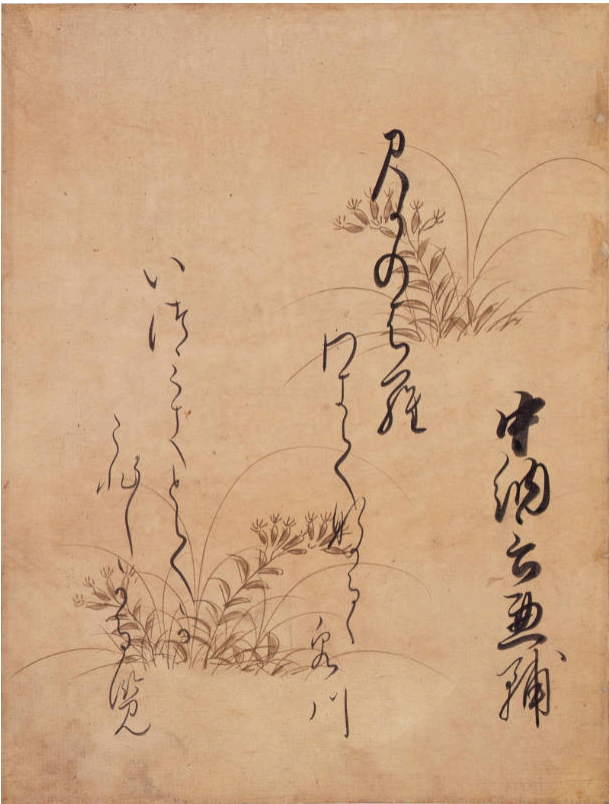 中納言兼輔
見かのはら
わきてなかるゝ
泉川
いつみきとてか
こひし
かる覧